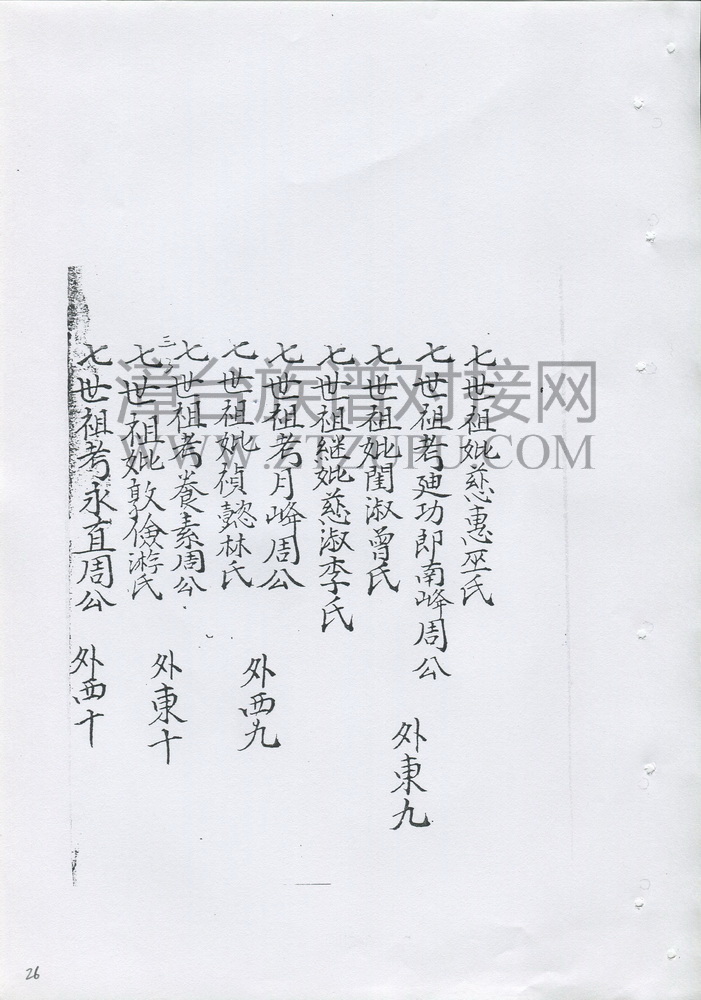 七世祖妣慈惠巫氏
七世祖考廸功即南峰周公
外東九
七世祖妣閨淑曾氏
七世祖継妣慈淑李氏
七世祖考月峰周公
外西九
七世祖妣禎懿林氏
七世祖考養素周公
外東十
三
七世祖妣敦儉游氏
七世祖考永直周公
外西十
漳台族谱对接网
WWW.ZTZUPU.COM
26